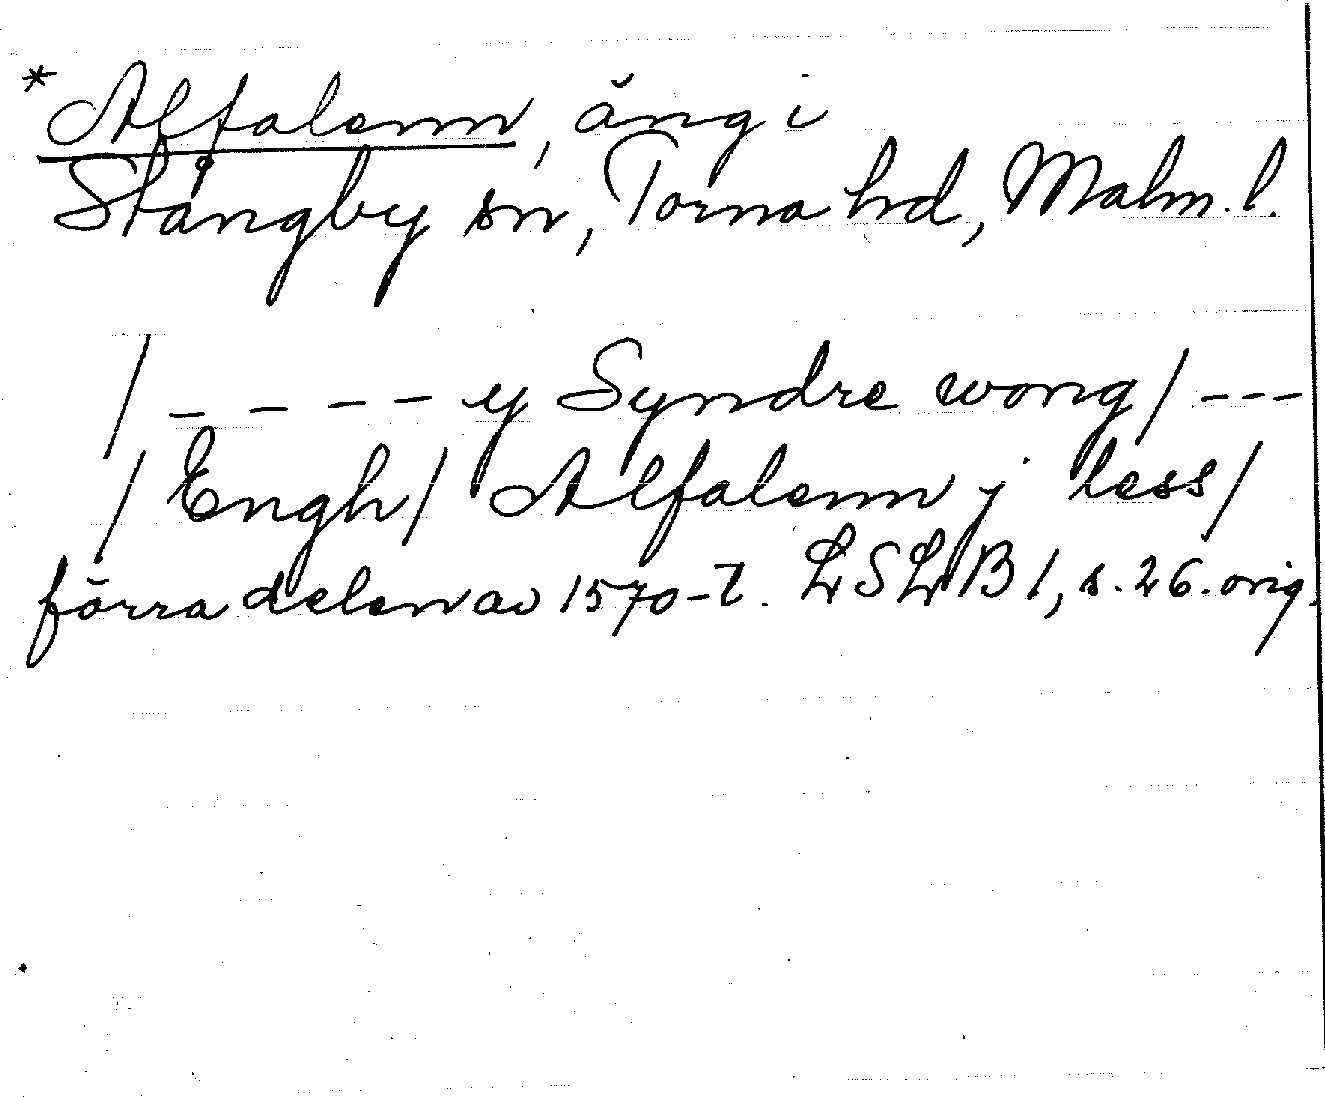 *Alfalenn, äng i
Stångby sn, Torna hd, Malm. l.
/ - - - - y Syndre wong / - - -
/ Engh / Alfalenn j less /
förra delen av 1570-t. LSLB 1, s. 26. orig.